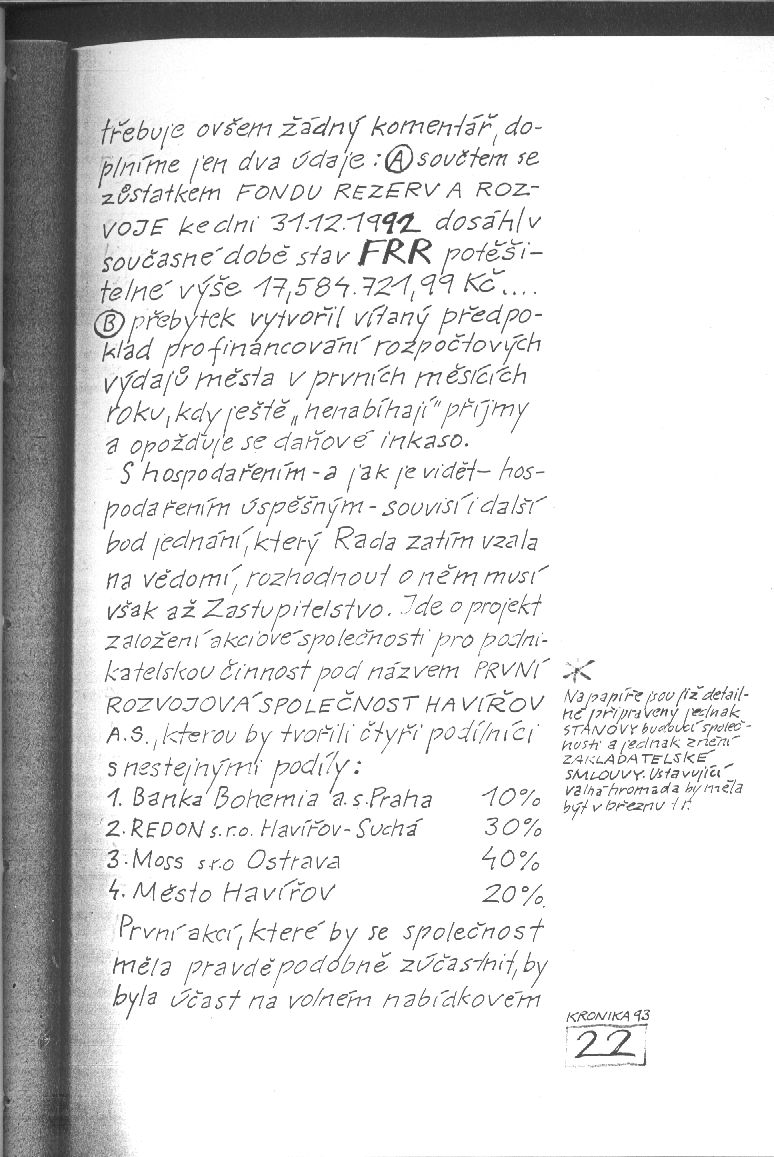 třebuje ovšem žádný komentář, do-
plníme jen dva údaje: Ⓐ součtem se
zůstatkem FONDU REZERV A ROZ-
VOJE ke dni 31.12.1992 dosáhl v
současné době stav FRR potěši-
telné výše 17,584.721,99 Kč....
Ⓑ přebytek vytvořil vítaný předpo-
klad pro financování rozpočtových
výdajů města v prvních měsících
roku, kdy ještě „nenabíhají" příjmy
a opožďuje se daňové inkaso.
S hospodařením - a jak je vidět - hos-
podařením úspěšným - souvisí i další
bod jednání, který Rada zatím vzala
na vědomí, rozhodnout o něm musí
však až Zastupitelstvo. Jde o projekt
založení akciové společnosti pro podni-
katelskou činnost pod názvem PRVNÍ
ROZVOJOVÁ SPOLEČNOST HAVÍŘOV
A.S., kterou by tvořili čtyři podílníci
s nestejnými podíly:
1. Banka Bohemia a.s. Praha 10%
2. REDON s.r.o. Havířov-Suchá 30%
3. Moss s.r.o Ostrava 40%
4. Město Havířov 20%.
První akcí, které by se společnost
měla pravděpodobně zúčastnit, by
byla účast na volném nabídkovém
*
Na papíře jsou již detail-
ně připraveny jednak
STANOVY budoucí společ-
nosti a jednak znění
ZAKLADATELSKÉ
SMLOUVY. Ustavující
valná hromada by měla
být v březnu t.r.
KRONIKA 93
22